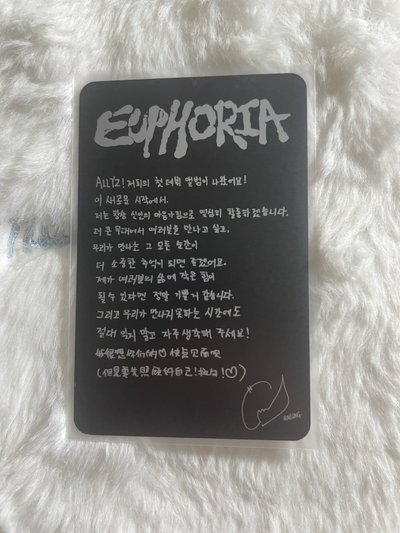 EUPHORIA
ALLYZ! 저희의 첫 데뷔 앨범이 나왔어요!
이 새로운 시작에서,
저는 항상 신인의 마음가짐으로 열심히 활동하겠습니다.
더 큰 무대에서 여러분을 만나고 싶고,
우리가 만나는 그 모든 순간이
더 소중한 추억이 되면 좋겠어요.
제가 여러분의 삶에 작은 힘이
될 수 있다면 정말 기쁠거 같습니다.
그리고 우리가 만나지 못하는 시간에도
절대 잊지 말고 자주 생각해 주세요!
好很想你们的♡ 快点见面呗
(但是要先照顾好自己! ♡)